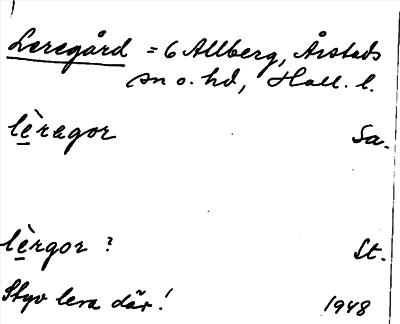 Leregård = 6 Allberg, Årstads
sn o. hd, Hall. l.
lèragor Sa.
lèrgor ? St.
Styv lera där!
1948